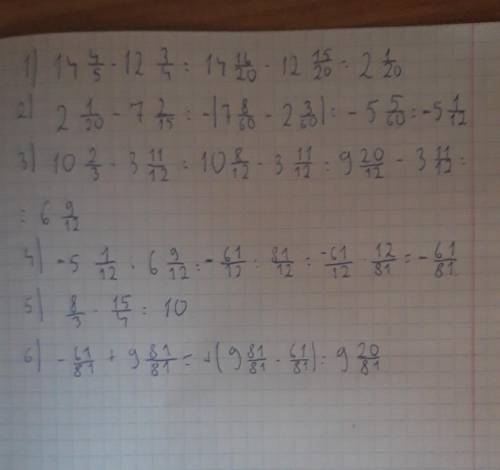 1) 14 4/5 - 12 3/4 = 14 16/20 - 12 15/20 = 2 1/20
2) 2 1/20 - 7 2/15 = -|7 8/60 - 2 3/60| = -5 5/60 = -5 1/12
3) 10 2/3 - 3 11/12 = 10 8/12 - 3 11/12 = 9 20/12 - 3 11/12 =
= 6 9/12
4) -5 1/12 : 6 9/12 = -61/12 : 81/12 = -61/12 · 12/81 = -61/81
5) 8/3 · 15/4 = 10
6) -61/81 + 9 81/81 = +(9 81/81 - 61/81) = 9 20/81